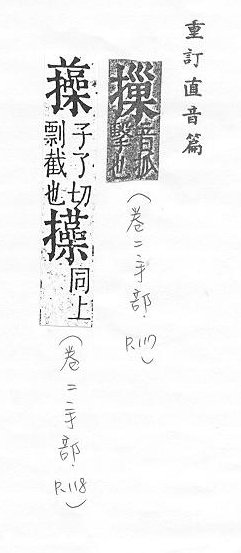 重訂直音篇
音孤
擊也
(卷二手部. P.117)
子了切
剽截也
同上
(卷二手部. P.118)